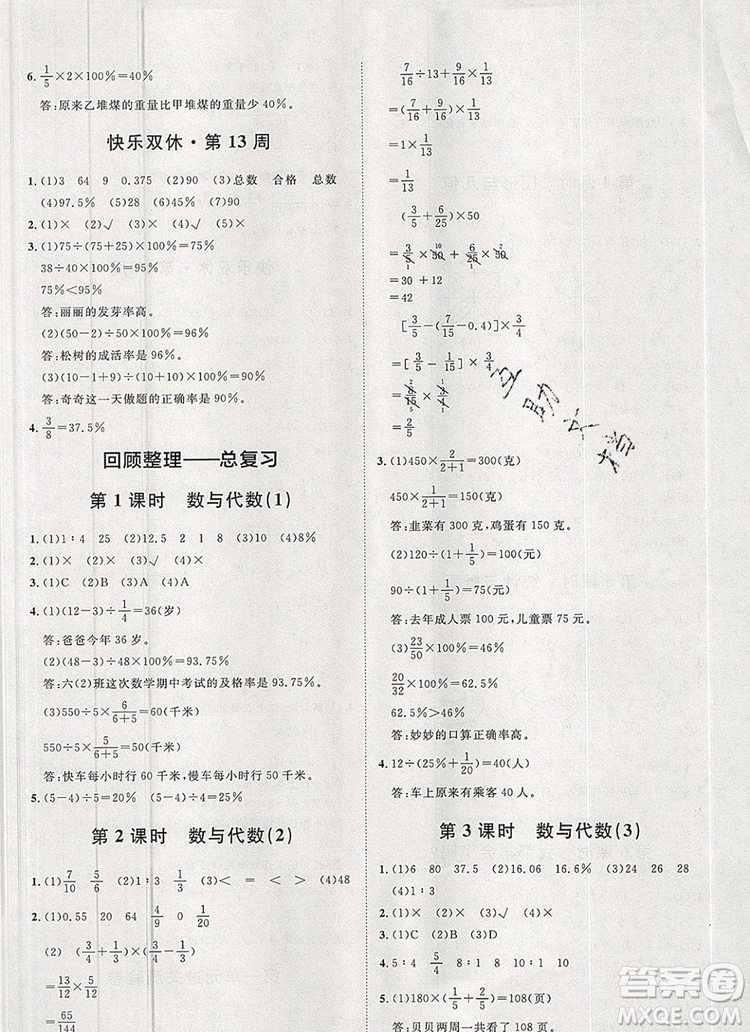 6. 1/5×2×100%=40%
答:原来乙堆煤的重量比甲堆煤的重量少 40%。
快乐双休·第 13 周
1. (1)3 64 9 0.375 (2)90 (3)总数 合格 总数
(4)97.5% (5)15% (6)20% (7)90
2. (1)× (2)√ (3)× (4)×
3. (1)75÷(75+25)=75%
38÷40×100%=95%
75%<95%
答:丽丽的发芽率高。
(2)(50-2)÷50=96%
答:松树的成活率是 96%。
(3)(10-1)÷10×100%=90%
答:奇奇这一天做题的正确率是 90%。
4. 3/8=37.5%
回顾整理——总复习
第 1 课时 数与代数(1)
1. (1)1∶4 25 (2)12.5 2 1∶8 (3)10 (4)8%
2. (1)× (2)× (3)√ (4)×
3. (1)C (2)B (3)A
4. (1)(12-3)÷1/4=36(岁)
答:爸爸今年 36 岁。
(2)(48-3)÷48×100%=93.75%
答:六(2)班这次数学期中考试的及格率是 93.75%。
(3)550÷5×6/(6+5)=60(千米)
550÷5×5/(6+5)=50(千米)
答:快车每小时行 60 千米,慢车每小时行 50 千米。
5. (5-4)÷5=20% (5-4)÷4=25%
第 2 课时 数与代数(2)
1. (1)7/10 5/6 (2)1∶3 1/3 (3)< = < > (4)48
2. (1)0.55 20 64 4/9 0 1/20
(2) (3/4+1/3)×(3/4-1/3)
=13/12×5/12
=65/144
7/16÷13+9/16×1/13
=(7/16+9/16)×1/13
=1×1/13
=1/13
(3/5+6/25)×50
=3/5×50+6/25×50
=30+12
=42
[3/5-(7/15-0.4)]×3/4
=[3/5-1/15]×3/4
=8/15×3/4
=2/5
互助文档
3. (1)450×2/(2+1)=300(克)
450×1/(2+1)=150(克)
答:韭菜有 300 克,鸡蛋有 150 克。
(2)120÷(1+1/5)=100(元)
90÷(1+1/5)=75(元)
答:去年成人票 100 元,儿童票 75 元。
(3)23/50×100%=46%
20/32×100%=62.5%
62.5%>46%
答:妙妙的口算正确率高。
4. 12÷(25%+1/20)=40(人)
答:车上原来有乘客 40 人。
第 3 课时 数与代数(3)
1. (1)6 80 37.5 (2)16 16.6% (3)24 26 28
(4)1∶3
2. (1)× (2)× (3)√ (4)×
3. (1)C (2)B (3)D
4. 5∶4 8∶1 10∶9 5∶8
5. (1)216×(25%+1/4)=108(页)
答:贝贝两周一共看了 108 页。
答案圈
MXQE.COM